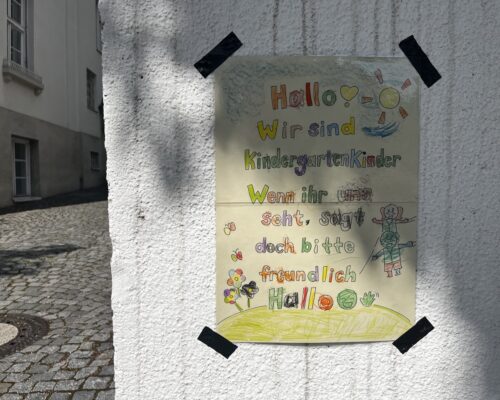 Hallo
Wir sind
Kindergartenkinder
Wenn ihr uns
seht, sagt
doch bitte
freundlich
Hallo